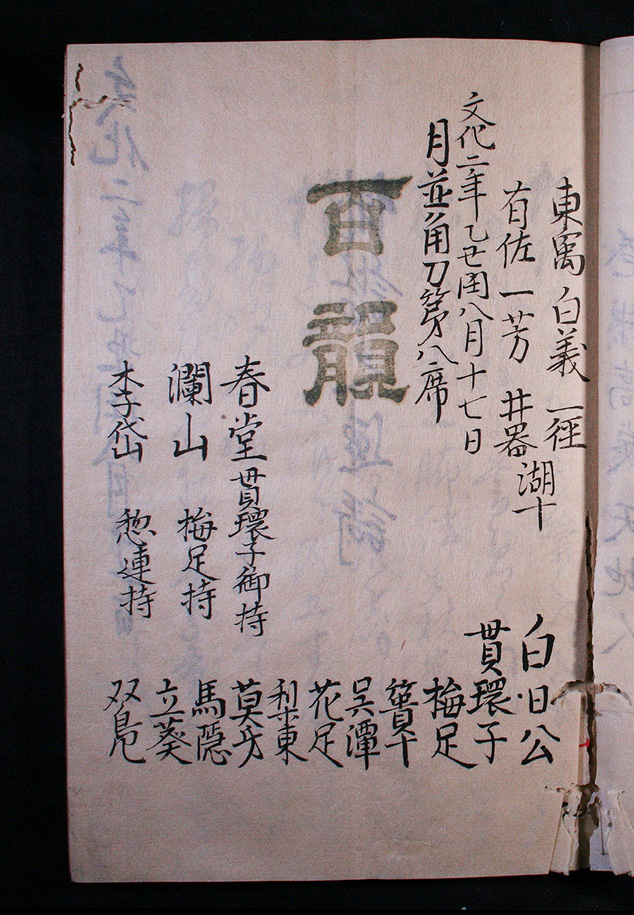 東寓 白義 一徑
有佐 一芳 井器 湖十
文化二年乙丑閏八月十七日
月並角力第八席
百韻
春堂 貫環子御持
瀾山 梅足持
李岱 愁連持
白日公
貫環子
梅足
呉潭
花足
梨東
莫牙
馬隠
立葵
双鳬